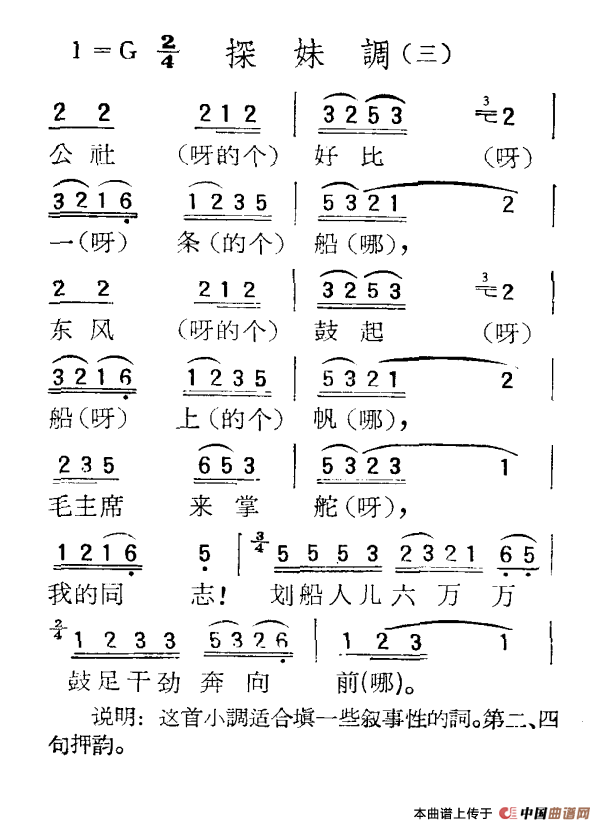 1=G 2/4 探妹調(三)
2 2 2 1 2 | 3 2 5 3 3 2 |
公社(呀的个)好比(呀)
3 2 1 6 1 2 3 5 | 5 3 2 1 2 |
一(呀)条(的个)船(哪),
2 2 2 1 2 | 3 2 5 3 3 2 |
东风(呀的个)鼓起(呀)
3 2 1 6 1 2 3 5 | 5 3 2 1 2 |
船(呀)上(的个)帆(哪),
2 3 5 6 5 3 | 5 3 2 3 1 |
毛主席来掌舵(呀),
1 2 1 6 5 | 3/4 5 5 5 3 2 3 2 1 6 5 |
我的同志!划船人儿六万万
2/4 1 2 3 3 5 3 2 6 | 1 2 3 1 |
鼓足干劲奔向前(哪)。
说明:这首小調适合填一些叙事性的詞。第二、四
句押韵。
本曲谱上传于 中国曲谱网